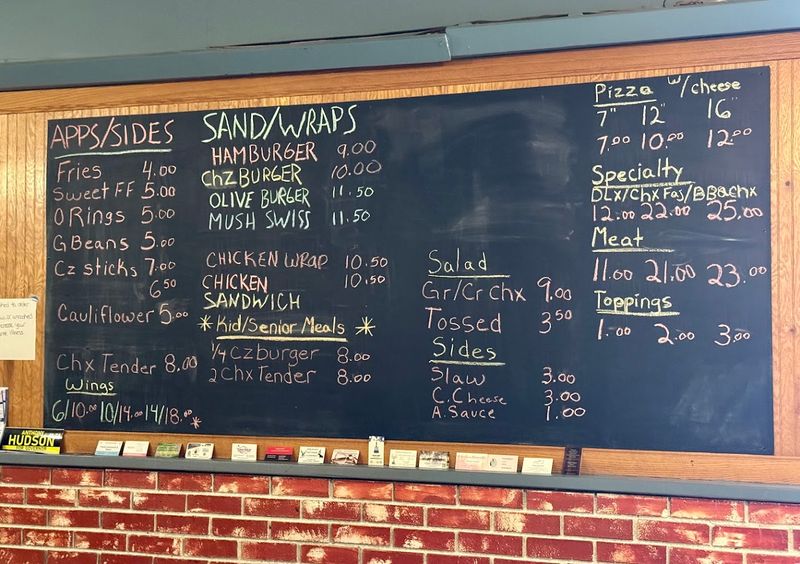 APPS/SIDES
Fries 4.00
Sweet FF 5.00
O Rings 5.00
G Beans 5.00
Cz sticks 7.00
6.50
Cauliflower 5.00
Chx Tender 8.00
Wings
6/10.00 10/14.00 14/18.00*
SAND/WRAPS
HAMBURGER 9.00
Chz BURGER 10.00
OLIVE BURGER 11.50
MUSH SWISS 11.50
CHICKEN WRAP 10.50
CHICKEN 10.50
SANDWICH
* Kid/Senior Meals *
1/4 Czburger 8.00
2 Chx Tender 8.00
Salad
Gr/Cr Chx 9.00
Tossed 3.50
Sides
Slaw 3.00
C. Cheese 3.00
A. Sauce 1.00
Pizza w/cheese
7" 12" 16"
7.00 10.00 12.00
Specialty
DLX/Chx Fas/BBQ Chx
12.00 22.00 25.00
Meat
11.00 21.00 23.00
Toppings
1.00 2.00 3.00
ANTHONY
HUDSON
FOR GOVERNOR